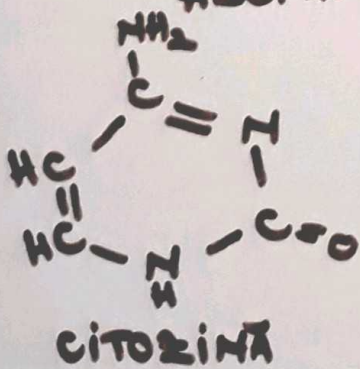 NH2
C = N
HC
HC
C=O
N
H
CITOZINĂ